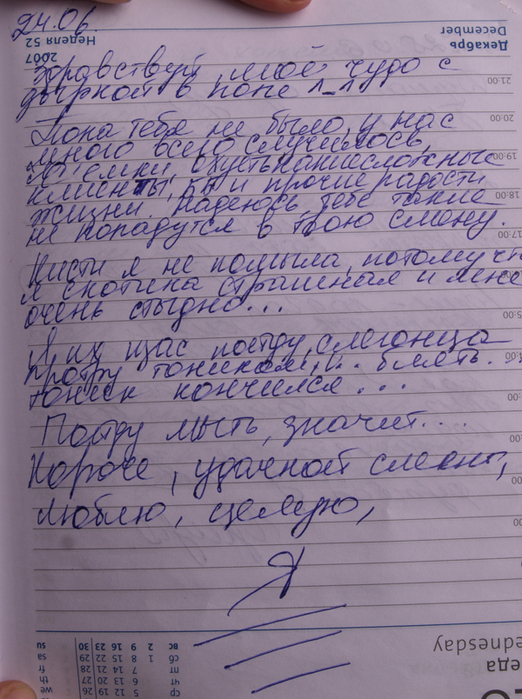 24.06.
Здравствуй, моё чудо с
дыркой в попе 1_1
Пока тебя не было, у нас
много всего случилось,
съёмки, охуть какие сложные
клиенты, бл и прочие радости
жизни. Надеюсь тебе такие
не попадутся в твою смену.
Кисти я не помыла, потому чт
я скотина страшная и мне
очень стыдно...
Я их щас пойду, слегонца
протру тоником, и.. блять.
тоник кончился...
Пойду мыть, значит...
Короче, удачной смены,
люблю, целую,
Я
Декабрь
December
Неделя 52
2007
21:00
20:00
19:00
18:00
17:00
su
вс 2 9 16 23 30
sa
сб 1 8 15 22 29
fr
пт 7 14 21 28
th
чт 6 13 20 27
we
ср 5 12 19 26
еда
ednesday